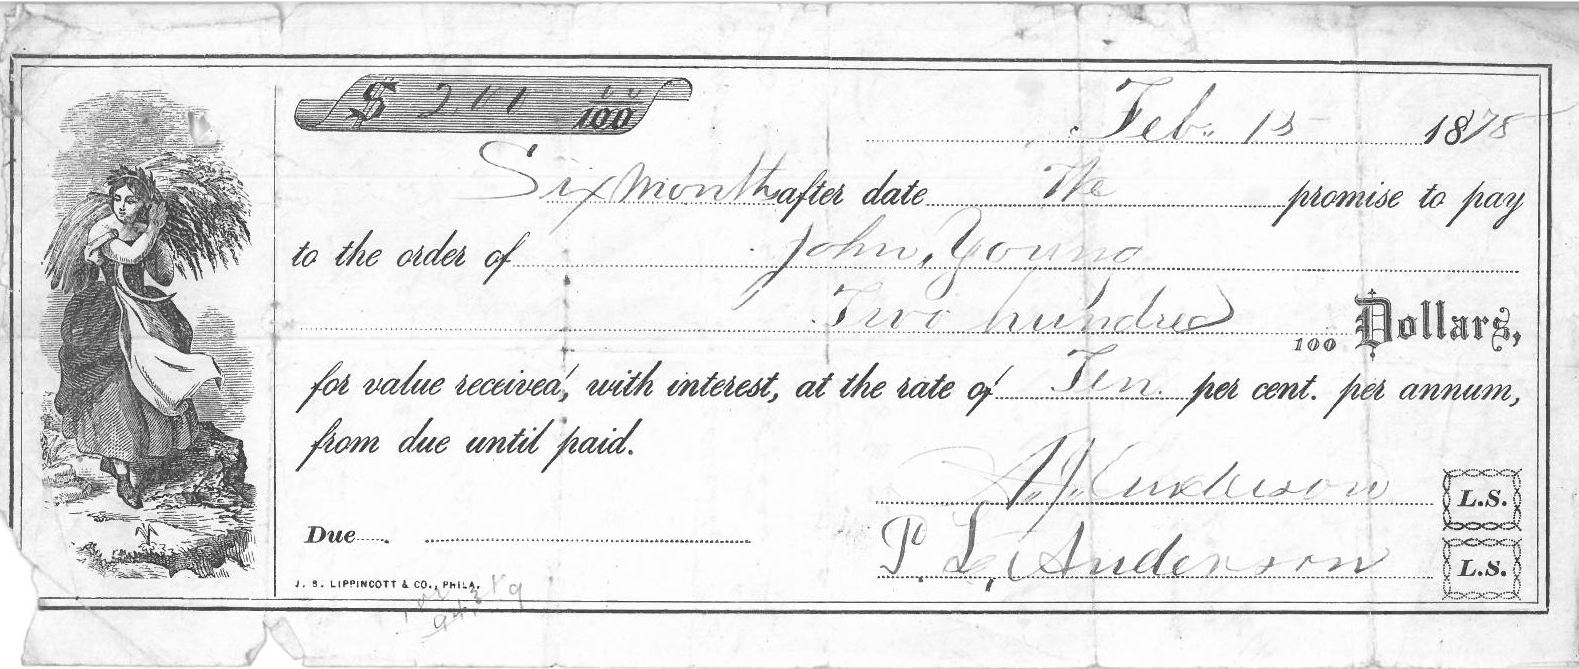 $ 200 00/100
Feb. 15 1878
Six months after date We promise to pay
to the order of John Young
Two hundred 100 Dollars,
for value received, with interest, at the rate of Ten per cent. per annum,
from due until paid.
A. J. Anderson L.S.
Due
P. L. Anderson L.S.
J. B. LIPPINCOTT & CO., PHILA.